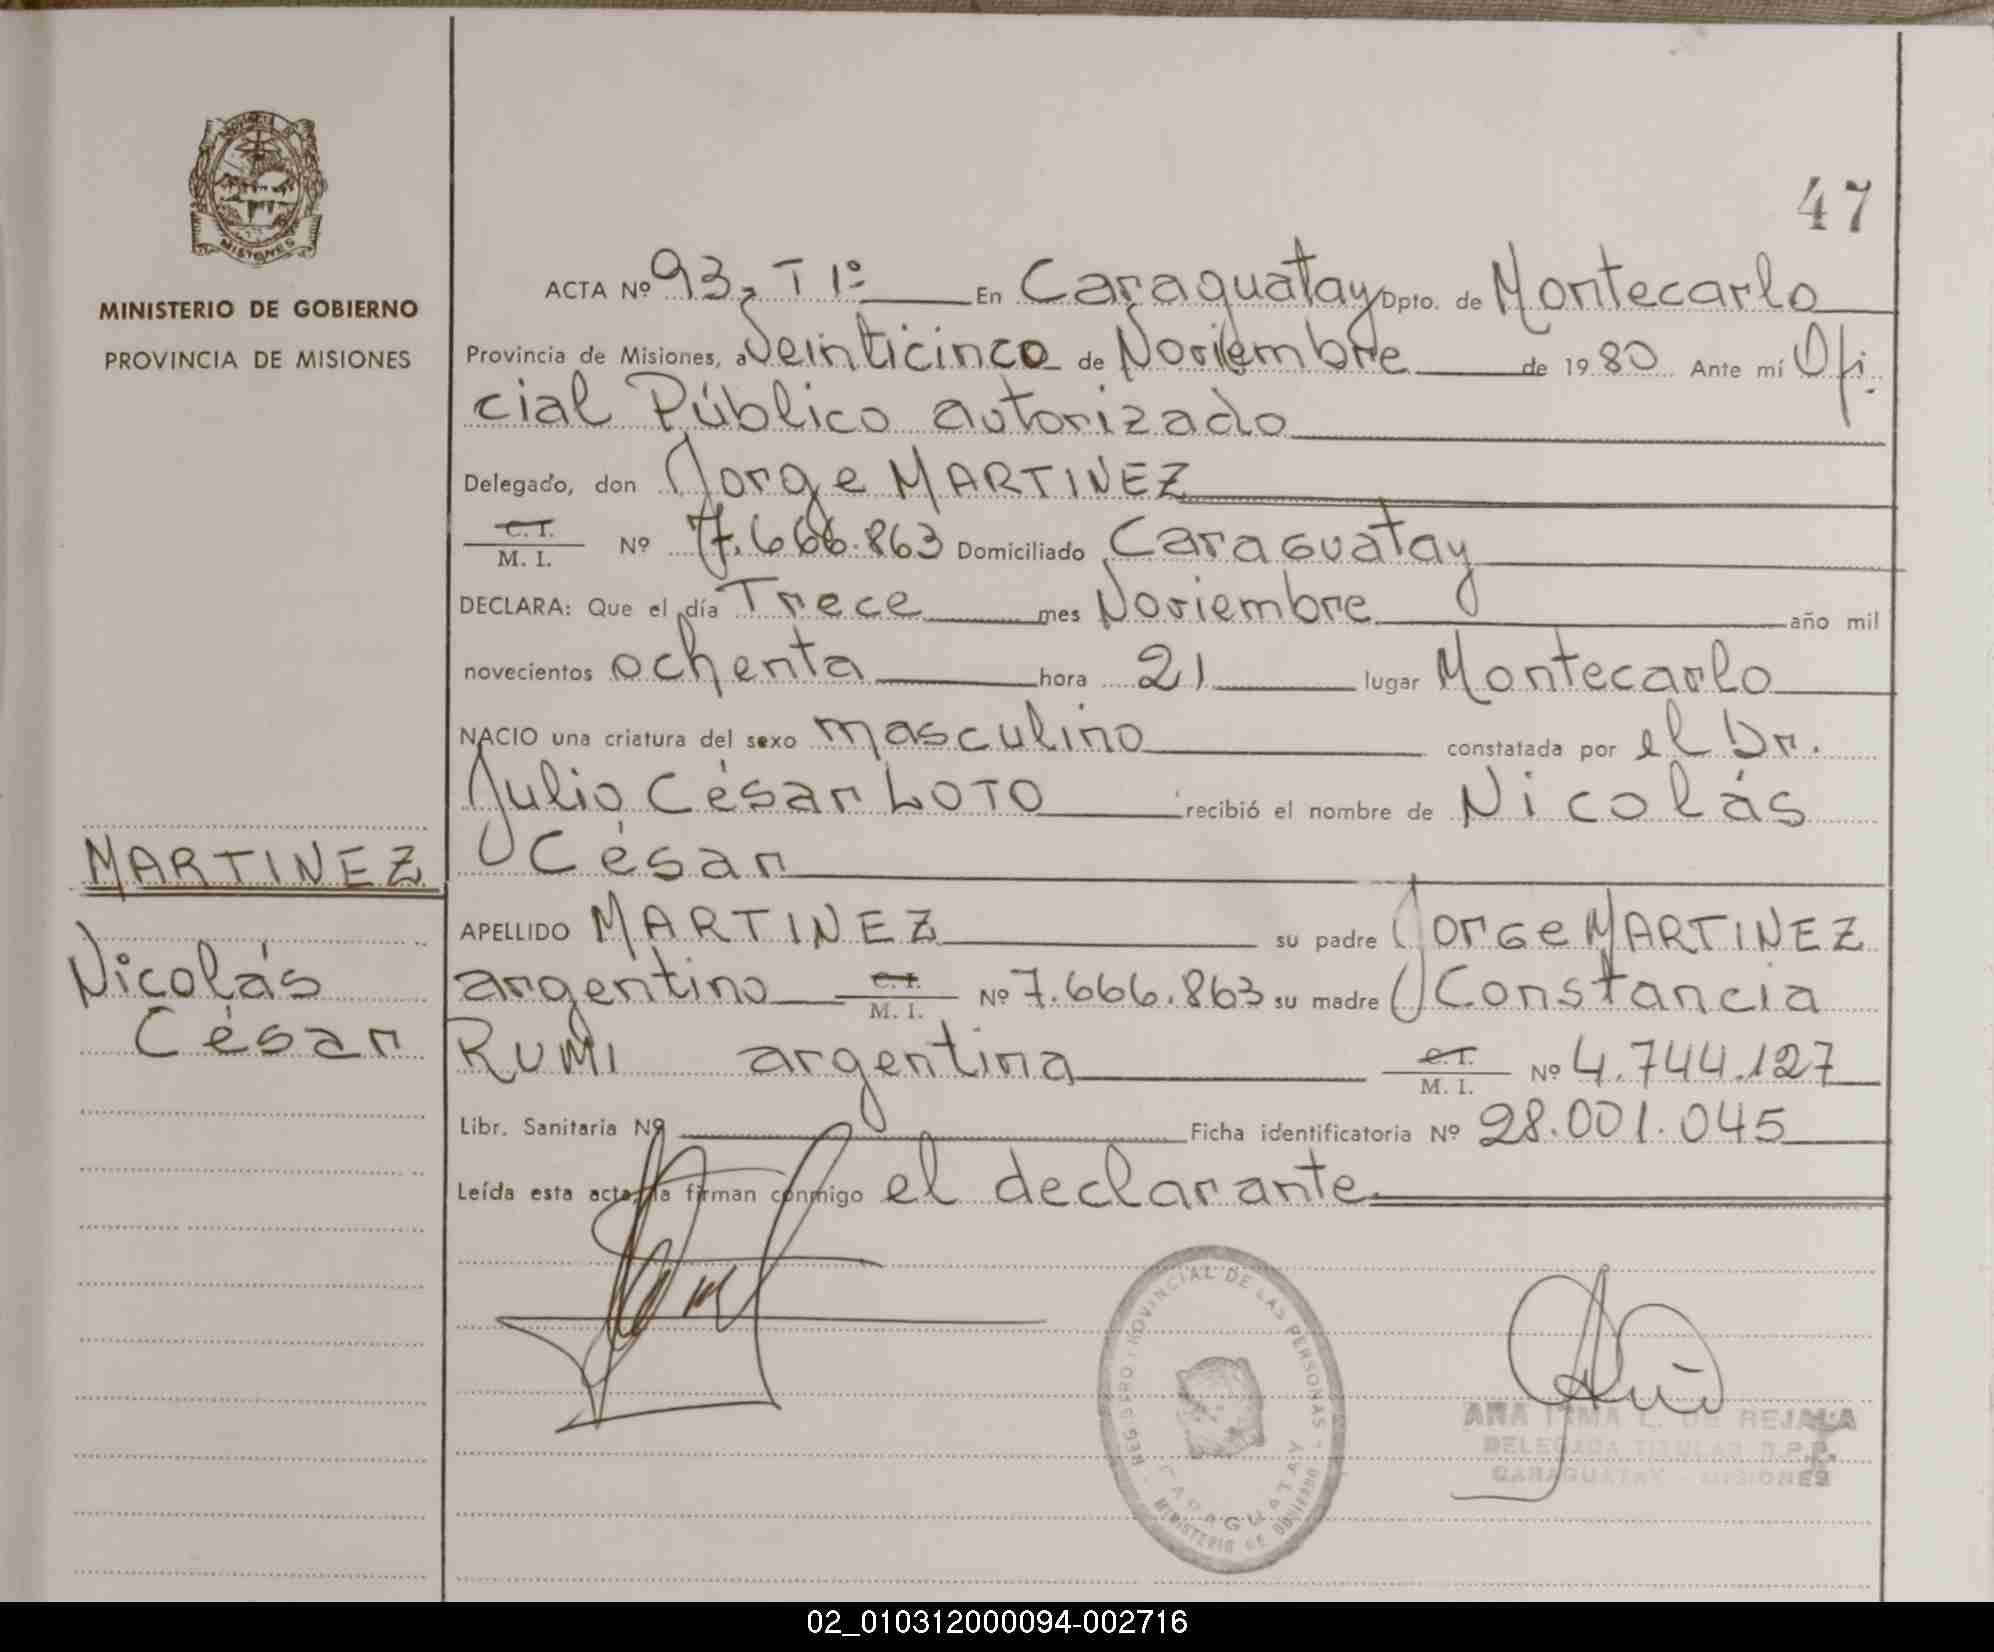 47
PROVINCIA DE
MISIONES
MINISTERIO DE GOBIERNO
PROVINCIA DE MISIONES
MARTINEZ
Nicolás
César
ACTA Nº 93, T 1º En Caraguatay Dpto. de Montecarlo
Provincia de Misiones, a Veinticinco de Noviembre de 1980 Ante mí Ofi
cial Público autorizado
Delegado, don Jorge MARTINEZ
C. I.
M. I. Nº 7.666.863 Domiciliado Caraguatay
DECLARA: Que el día Trece mes Noviembre año mil
novecientos ochenta hora 21 lugar Montecarlo
NACIO una criatura del sexo masculino constatada por el Dr.
Julio César LOTO recibió el nombre de Nicolás
César
APELLIDO MARTINEZ su padre Jorge MARTINEZ
argentino C. I. M. I. Nº 7.666.863 su madre Constancia
RUMI argentina C. I. M. I. Nº 4.744.127
Libr. Sanitaria Nº Ficha identificatoria Nº 28.001.045
Leída esta acta, la firman conmigo el declarante
REGISTRO PROVINCIAL DE LAS PERSONAS
CARAGUATAY
MINISTERIO DE GOBIERNO
ANA IRMA L. DE REJALA
DELEGADA TITULAR R.P.P.
CARAGUATAY - MISIONES
02_010312000094-002716